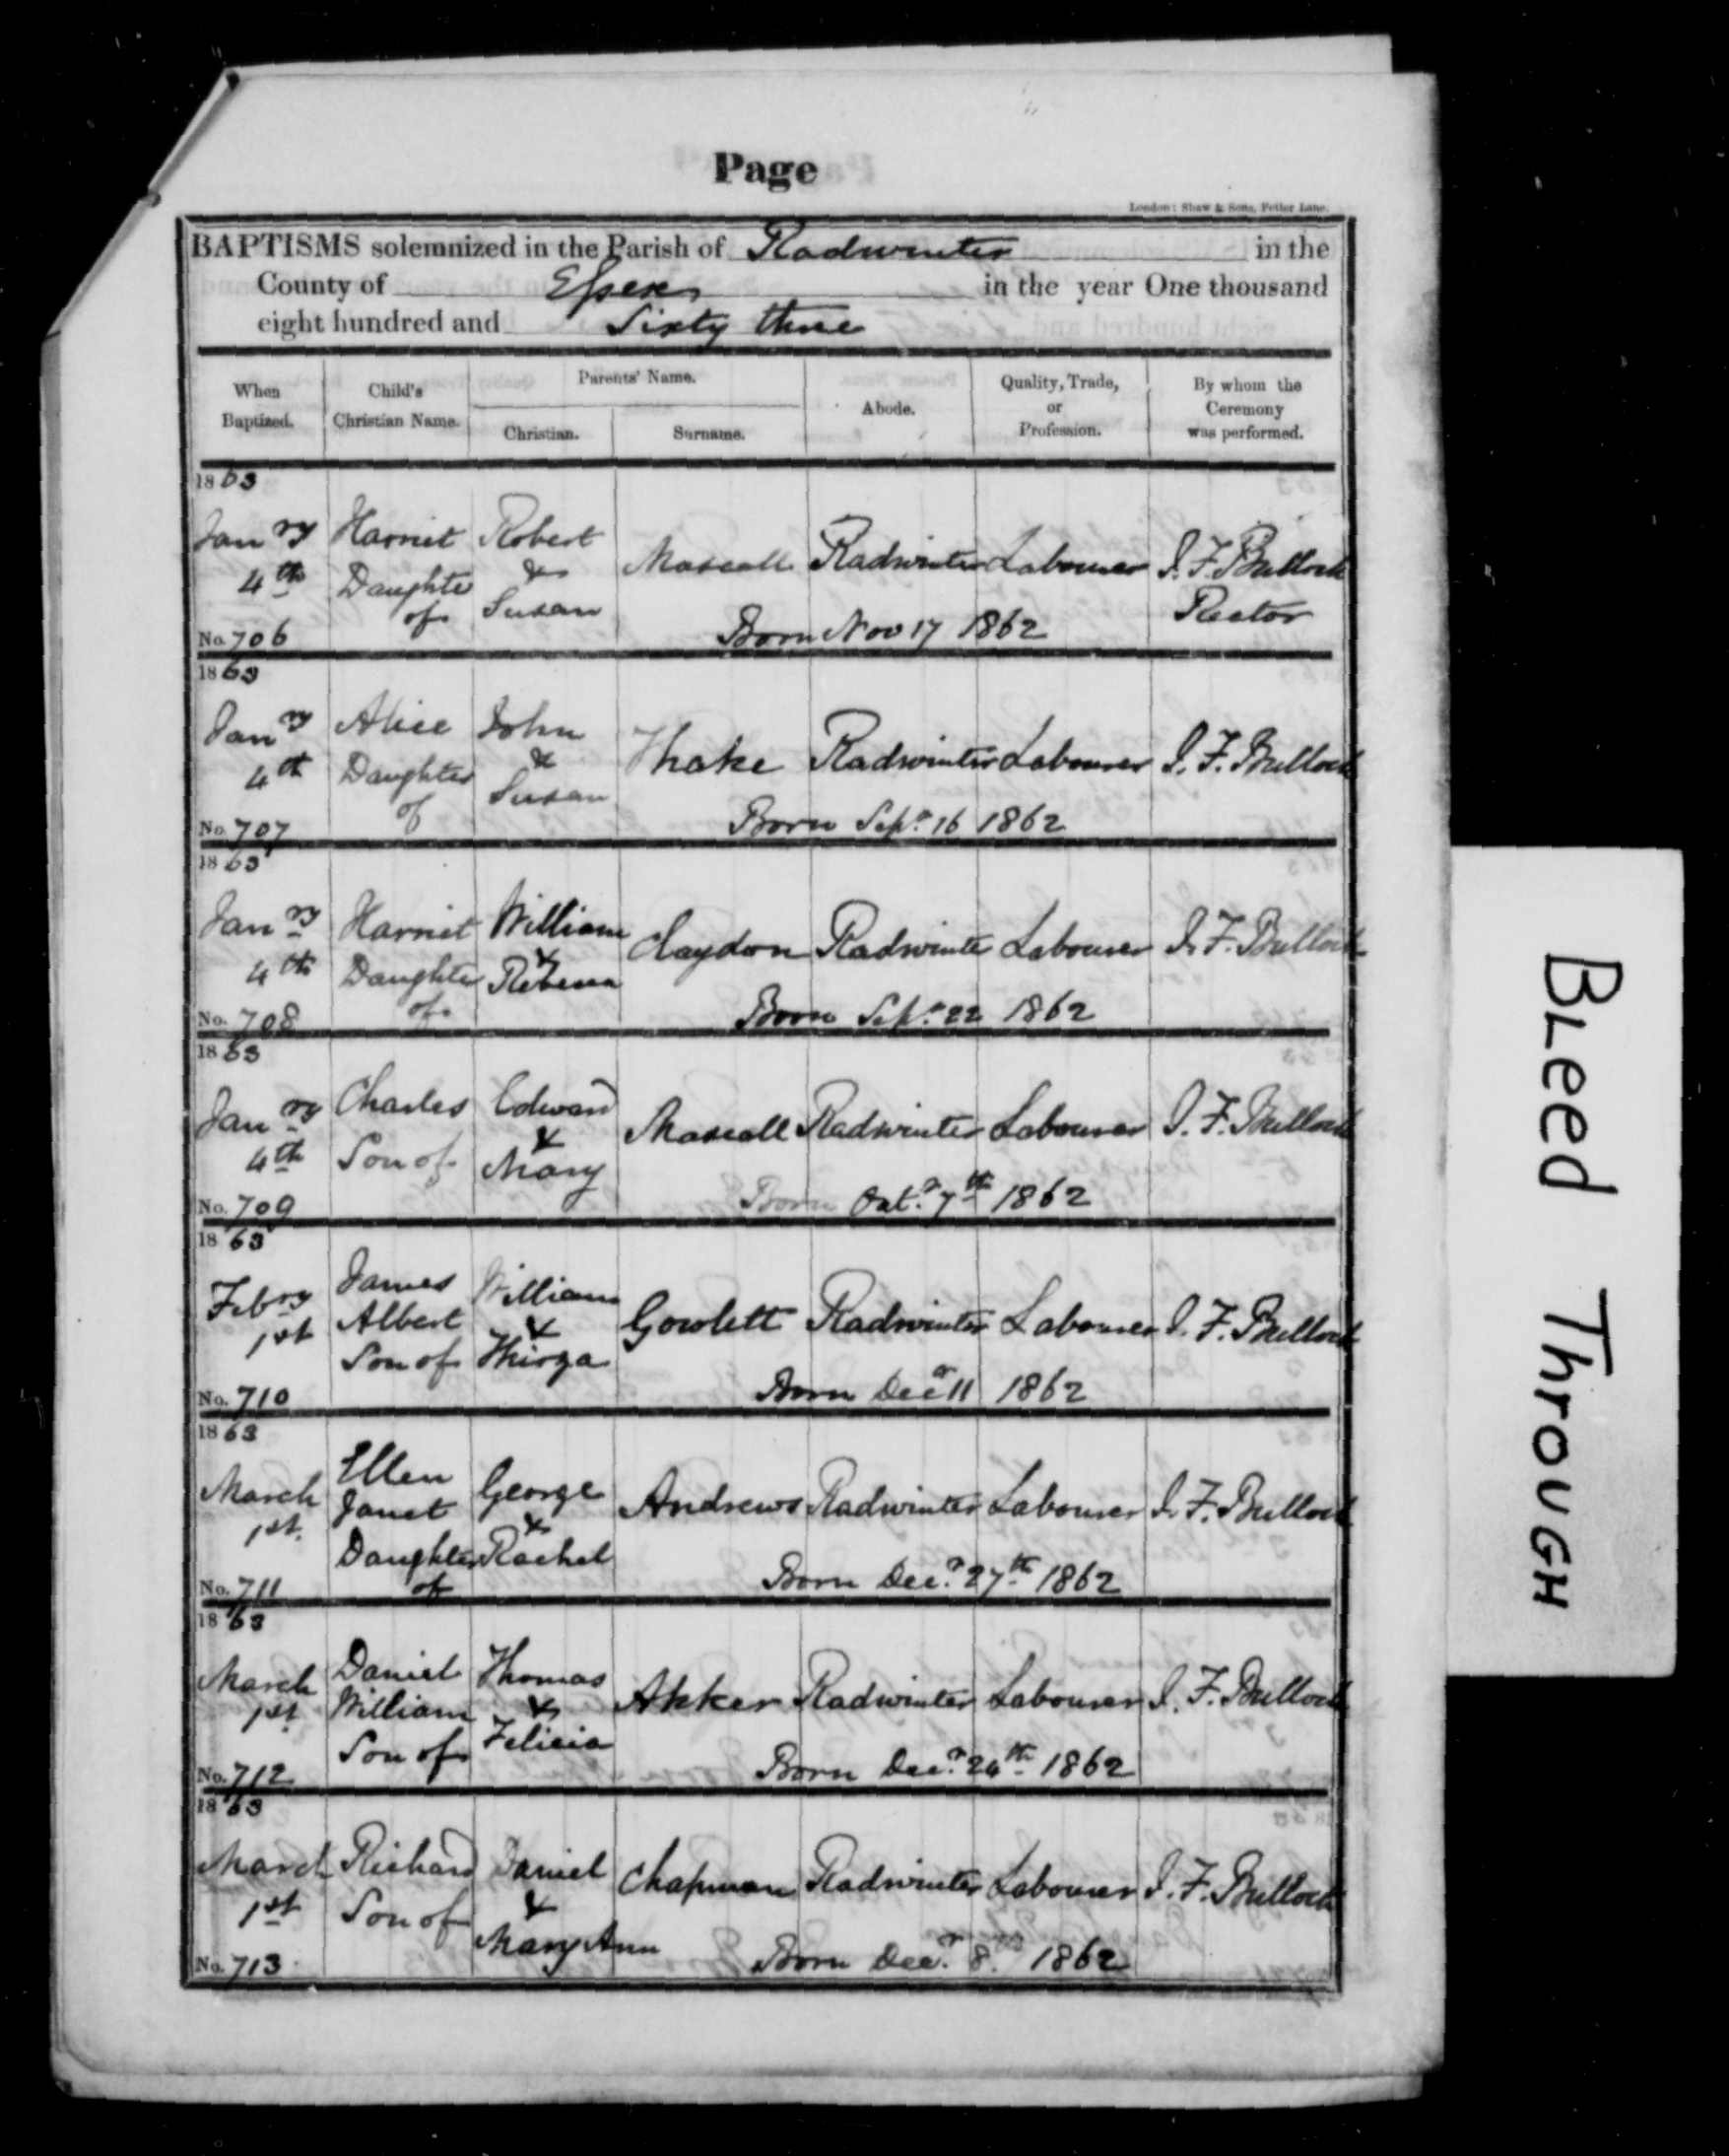 Page
London: Shaw & Sons, Fetter Lane.
BAPTISMS solemnized in the Parish of Radwinter in the
County of Essex in the year One thousand
eight hundred and Sixty three
When Baptized. Child's Christian Name. Parents' Name. Christian. Surname. Abode. Quality, Trade, or Profession. By whom the Ceremony was performed.
1863
Janry 4th Harriet Daughter of Robert & Susan Mascall Radwinter Labourer J. F. Bullock Rector
No. 706 Born Nov 17 1862
1863
Janry 4th Alice Daughter of John & Susan Thake Radwinter Labourer J. F. Bullock
No. 707 Born Sepr. 16 1862
1863
Janry 4th Harriet Daughter of William & Rebecca Claydon Radwinter Labourer J. F. Bullock
No. 708 Born Sepr. 22 1862
1863
Janry 4th Charles Son of Edward & Mary Mascall Radwinter Labourer J. F. Bullock
No. 709 Born Octr. 7th 1862
1863
Febry 1st James Albert Son of William & Thirza Gowlett Radwinter Labourer J. F. Bullock
No. 710 Born Decr 11 1862
1863
March 1st. Ellen Janet Daughter of George & Rachel Andrews Radwinter Labourer J. F. Bullock
No. 711 Born Decr. 27th 1862
1863
March 1st Daniel William Son of Thomas & Felicia Akker Radwinter Labourer J. F. Bullock
No. 712 Born Decr. 24th 1862
1863
March 1st Richard Son of Daniel & Mary Ann Chapman Radwinter Labourer J. F. Bullock
No. 713 Born Decr. 8. 1862
BLeed ThrouGH